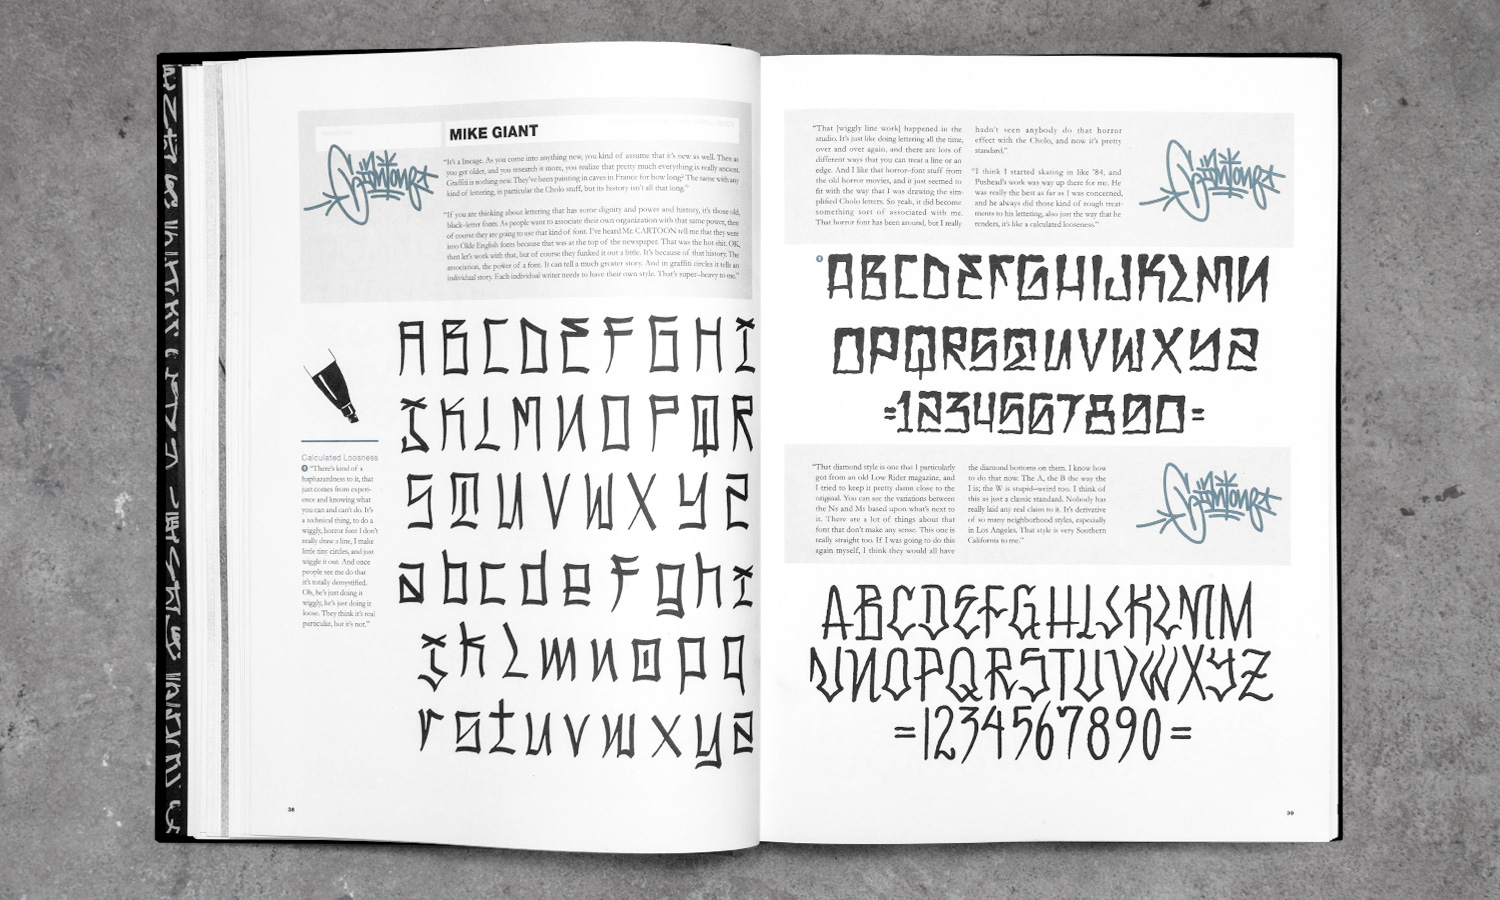 MIKE GIANT
"It's a lineage. As you come into anything new, you kind of assume that it's new as well. Then as
you get older, and you research it more, you realize that pretty much everything is really ancient.
Graffiti is nothing new. They've been painting in caves in France for how long? The same with any
kind of lettering, in particular the Cholo stuff, but its history isn't all that long."
"If you are thinking about lettering that has some dignity and power and history, it's those old,
black-letter fonts. As people want to associate their own organization with that same power, then
of course they are going to use that kind of font. I've heard Mr. CARTOON tell me that they were
into Olde English fonts because that was at the top of the newspaper. That was the hot shit. OK,
then let's work with that, but of course they funked it out a little. It's because of that history. The
association, the power of a font. It can tell a much greater story. And in graffiti circles it tells an
individual story. Each individual writer needs to have their own style. That's super-heavy to me."
A B C D E F G H I
J K L M N O P Q R
S T U V W X Y Z
a b c d e f g h i
j k l m n o p q
r s t u v w x y z
Calculated Loosness
"There's kind of a
haphazardness to it, that
just comes from experi-
ence and knowing what
you can and can't do. It's
a technical thing, to do a
wiggly, horror font I don't
really draw a line, I make
little tiny circles, and just
wiggle it out. And once
people see me do that
it's totally demystified.
Oh, he's just doing it
wiggly, he's just doing it
loose. They think it's real
particular, but it's not."
38
"That [wiggly line work] happened in the
studio. It's just like doing lettering all the time,
over and over again, and there are lots of
different ways that you can treat a line or an
edge. And I like that horror-font stuff from
the old horror movies, and it just seemed to
fit with the way that I was drawing the sim-
plified Cholo letters. So yeah, it did become
something sort of associated with me.
That horror font has been around, but I really
hadn't seen anybody do that horror
effect with the Cholo, and now it's pretty
standard."
"I think I started skating in like '84, and
Pushead's work was way up there for me. He
was really the best as far as I was concerned,
and he always did those kind of rough treat-
ments to his lettering, also just the way that he
renders, it's like a calculated looseness."
ABCDEFGHIJKLMN
OPQRSTUVWXYZ
=1234567890=
"That diamond style is one that I particularly
got from an old Low Rider magazine, and
I tried to keep it pretty damn close to the
original. You can see the variations between
the Ns and Ms based upon what's next to
it. There are a lot of things about that
font that don't make any sense. This one is
really straight too. If I was going to do this
again myself, I think they would all have
the diamond bottoms on them. I know how
to do that now. The A, the B the way the
I is; the W is stupid–weird too. I think of
this as just a classic standard. Nobody has
really laid any real claim to it. It's derivative
of so many neighborhood styles, especially
in Los Angeles. That style is very Southern
California to me."
ABCDEFGHIJKLMM
NNOPQRSTUVWXYZ
=1234567890=
39